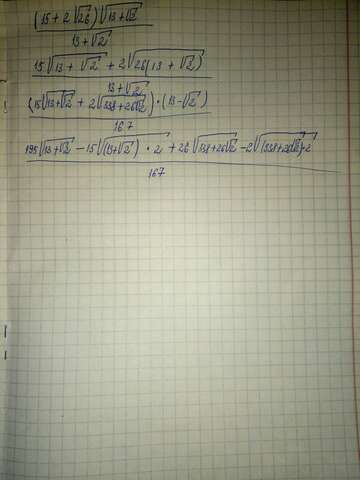 (15 + 2√26)√(13+√2)
13+√2
15√(13+√2) + 2√(26(13+√2))
13+√2
(15√(13+√2) + 2√(338+26√2)) · (13-√2)
167
195√(13+√2) - 15√((13+√2) · 2) + 26√(338+26√2) - 2√((338+26√2)·2)
167